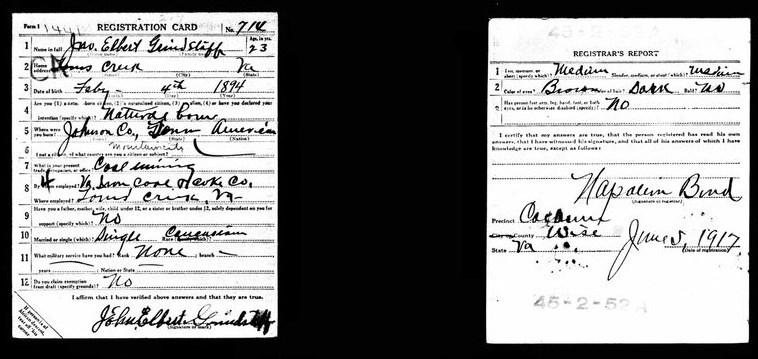 Form 1 REGISTRATION CARD No. 714
1 Name in full Jno. Elbert Grindstaff Age, in yrs. 23
2 Home address Toms Creek Va
(City) (State)
3 Date of birth Feby - 4th 1894
4 Are you (1) a natural-born citizen, (2) a naturalized citizen, (3) an alien, (4) or have you declared your
intention (specify which)? Natural born
5 Where were you born? Johnson Co, Tenn American
(Nation)
6 If not a citizen, of what country are you a citizen or subject?
7 What is your present trade, occupation, or office? Coal mining
8 By whom employed? Va. Iron Coal & Coke Co.
Where employed? Toms Creek, Va
9 Have you a father, mother, wife, child under 12, or a sister or brother under 12, solely dependent on you for
support (specify which)? No
10 Married or single (which)? Single Race Caucasian
11 What military service have you had? Rank None ; branch -
years Nation or State
12 Do you claim exemption from draft (specify grounds)? No
I affirm that I have verified above answers and that they are true.
John Elbert Grindstaff
(Signature or mark)
REGISTRAR'S REPORT
1 Tall, medium, or short (specify which)? Medium Slender, medium, or stout (which)? Medium
2 Color of eyes? Brown Color of hair? Dark Bald? No
3 Has person lost arm, leg, hand, foot, or both
eyes, or is he otherwise disabled (specify)? No
I certify that my answers are true, that the person registered has read his own
answers, that I have witnessed his signature, and that all of his answers of which I have
knowledge are true, except as follows:
Napoleon Bond
(Signature of registrar)
Precinct Coeburn
City or County Wise
State Va June 5, 1917
(Date of registration)
45-2-52A